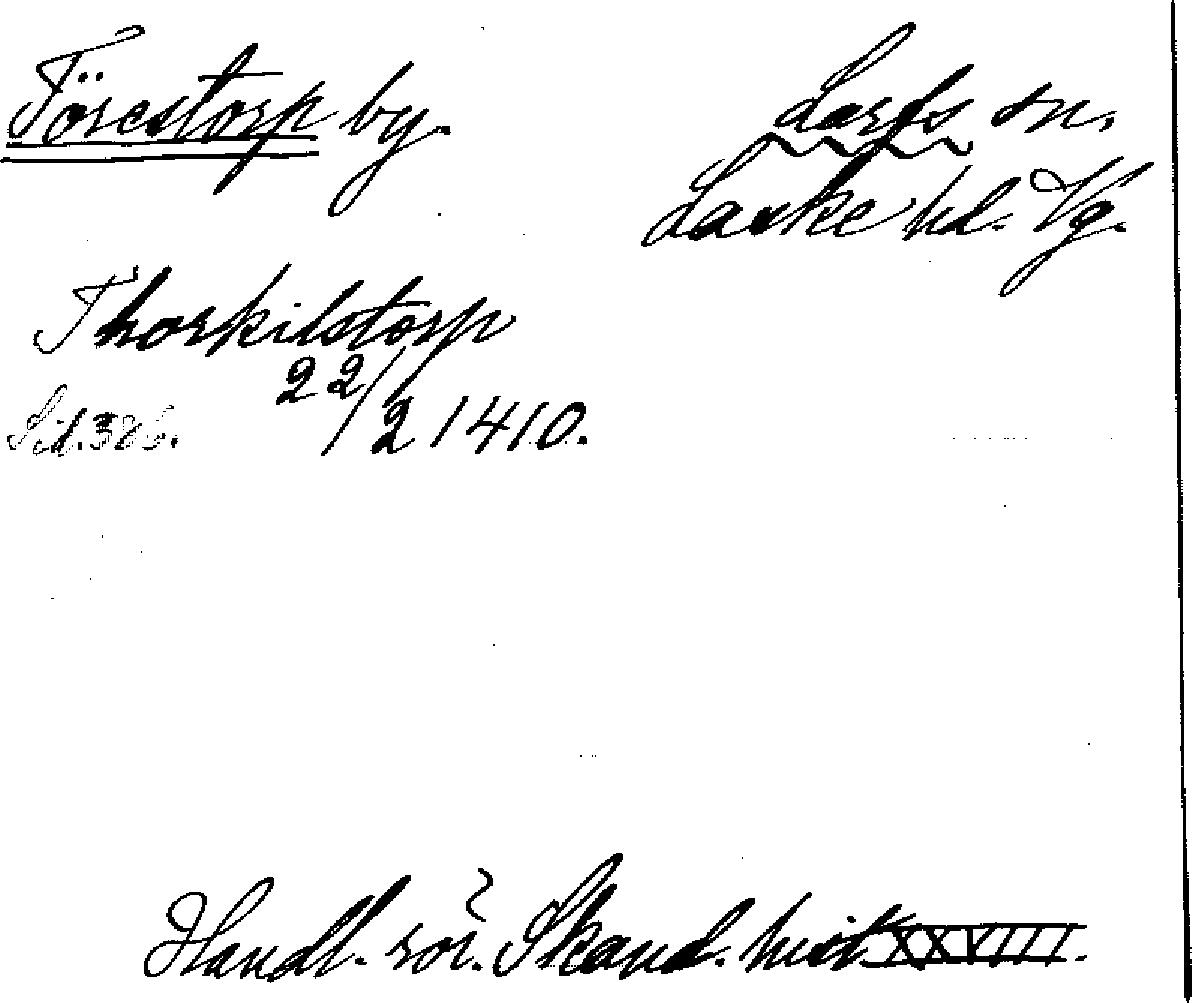 Törestorp by.
Larfs sn.
Laske hd. Vg.
Thorkilstorp
22/2 1410.
Sid. 386.
Handl. rör. Skand. hist. XXVIII.